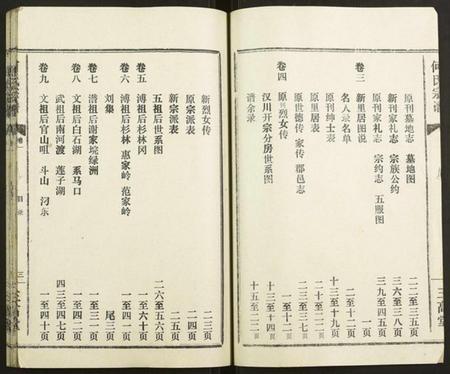 何氏宗谱
原刊墓地志 墓地图 二二至三五页
新刊家礼志 宗族公约 六至三八页
卷三
原刊家礼志 宗约志 五服图 三九至四五页
新里居图说 一页
名人录名单 二至十二页
原刊绅士表 十三至十九页
原里居表
原世德传 家传 郡邑志
卷四
原刊烈女传 一至十二页
汉川开宗分房世系图 十三至十四页
谱余录 十五至二二页
三高堂
新烈女传 二三页
原宗派表 二四页
新宗派表 二五页
五祖后世系图 二六至五六页
卷五
溥祖后杉林冈 一至六十页
卷六
溥祖后杉林 惠家岭 范家岭 一至四一页
刘集 尾三页
卷七
潜祖后谢家垸绿洲 一至三一页
卷八
文祖后白石湖 系马口 一至四二页
武祖后南河渡 莲子湖 四三至四七页
卷九
文祖后官山咀 斗山 汈东 一至四十页
目录
三